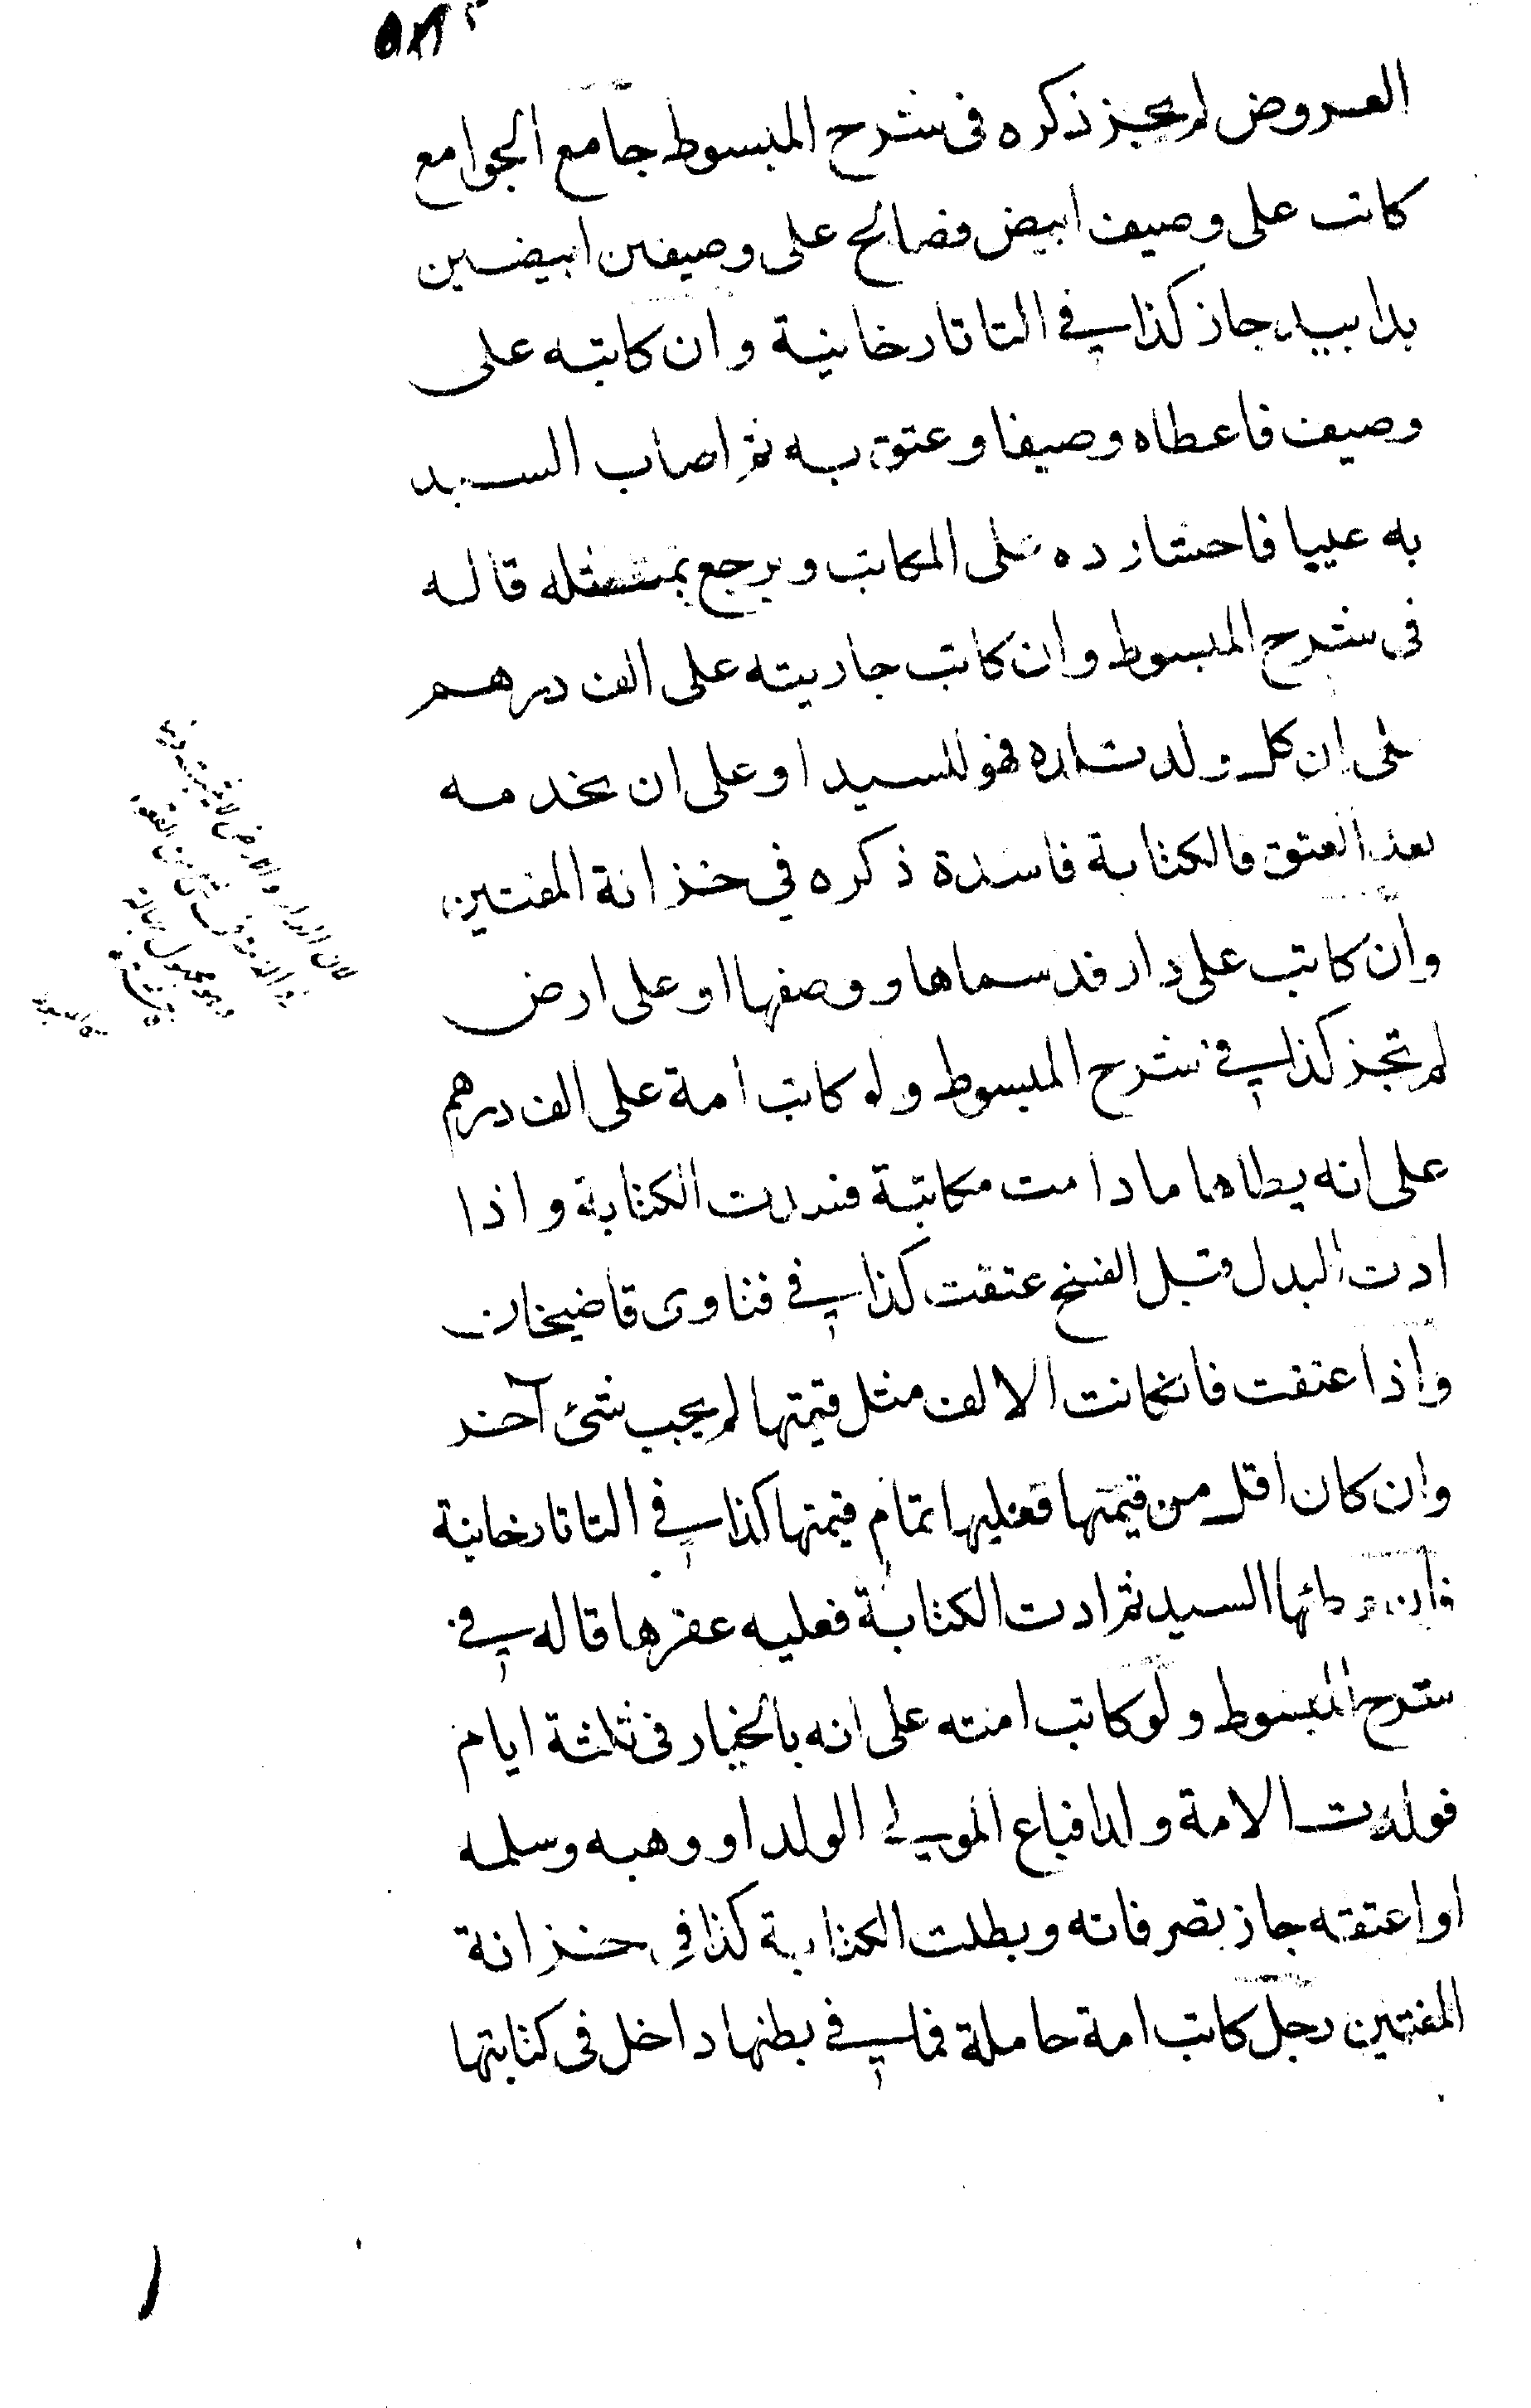 العروض لم يجز ذكره فى شرح المبسوط جامع الجوامع
كاتب على وصيف ابيض فصالح على وصيفين ابيضين
يدا بيد جاز كذا في التاتارخانية وان كاتبه على
وصيف فاعطاه وصيفا وعتق به ثم اصاب السيد
به عيبا فاحشا رده على المكاتب ويرجع بمثله قاله
فى شرح المبسوط وان كاتب جاريته على الف درهم
على ان كل ولد تلده فهو للسيد او على ان يخدمه
بعد العتق فالكتابة فاسدة ذكره في خزانة المفتين
وان كاتب على دار قد سماها ووصفها او على ارض
لم تجز كذا في شرح المبسوط ولو كاتب امة على الف درهم
على انه يطاها ما دامت مكاتبة فسدت الكتابة واذا
ادت البدل قبل الفسخ عتقت كذا في فتاوى قاضيخان
واذا عتقت فانكانت الالف مثل قيمتها لم يجب شئ آخر
وان كان اقل من قيمتها فعليها تمام قيمتها كذا في التاتارخانية
فان وطئها السيد ثم ادت الكتابة فعليه عقرها قاله في
شرح المبسوط ولو كاتب امته على انه بالخيار فى ثلثة ايام
فولدت الامة ولدا فباع المولى الولد او وهبه وسلمه
او اعتقه جاز تصرفاته وبطلت الكتابة كذا في خزانة
المفتين رجل كاتب امة حاملة فما في بطنها داخل فى كتابتها